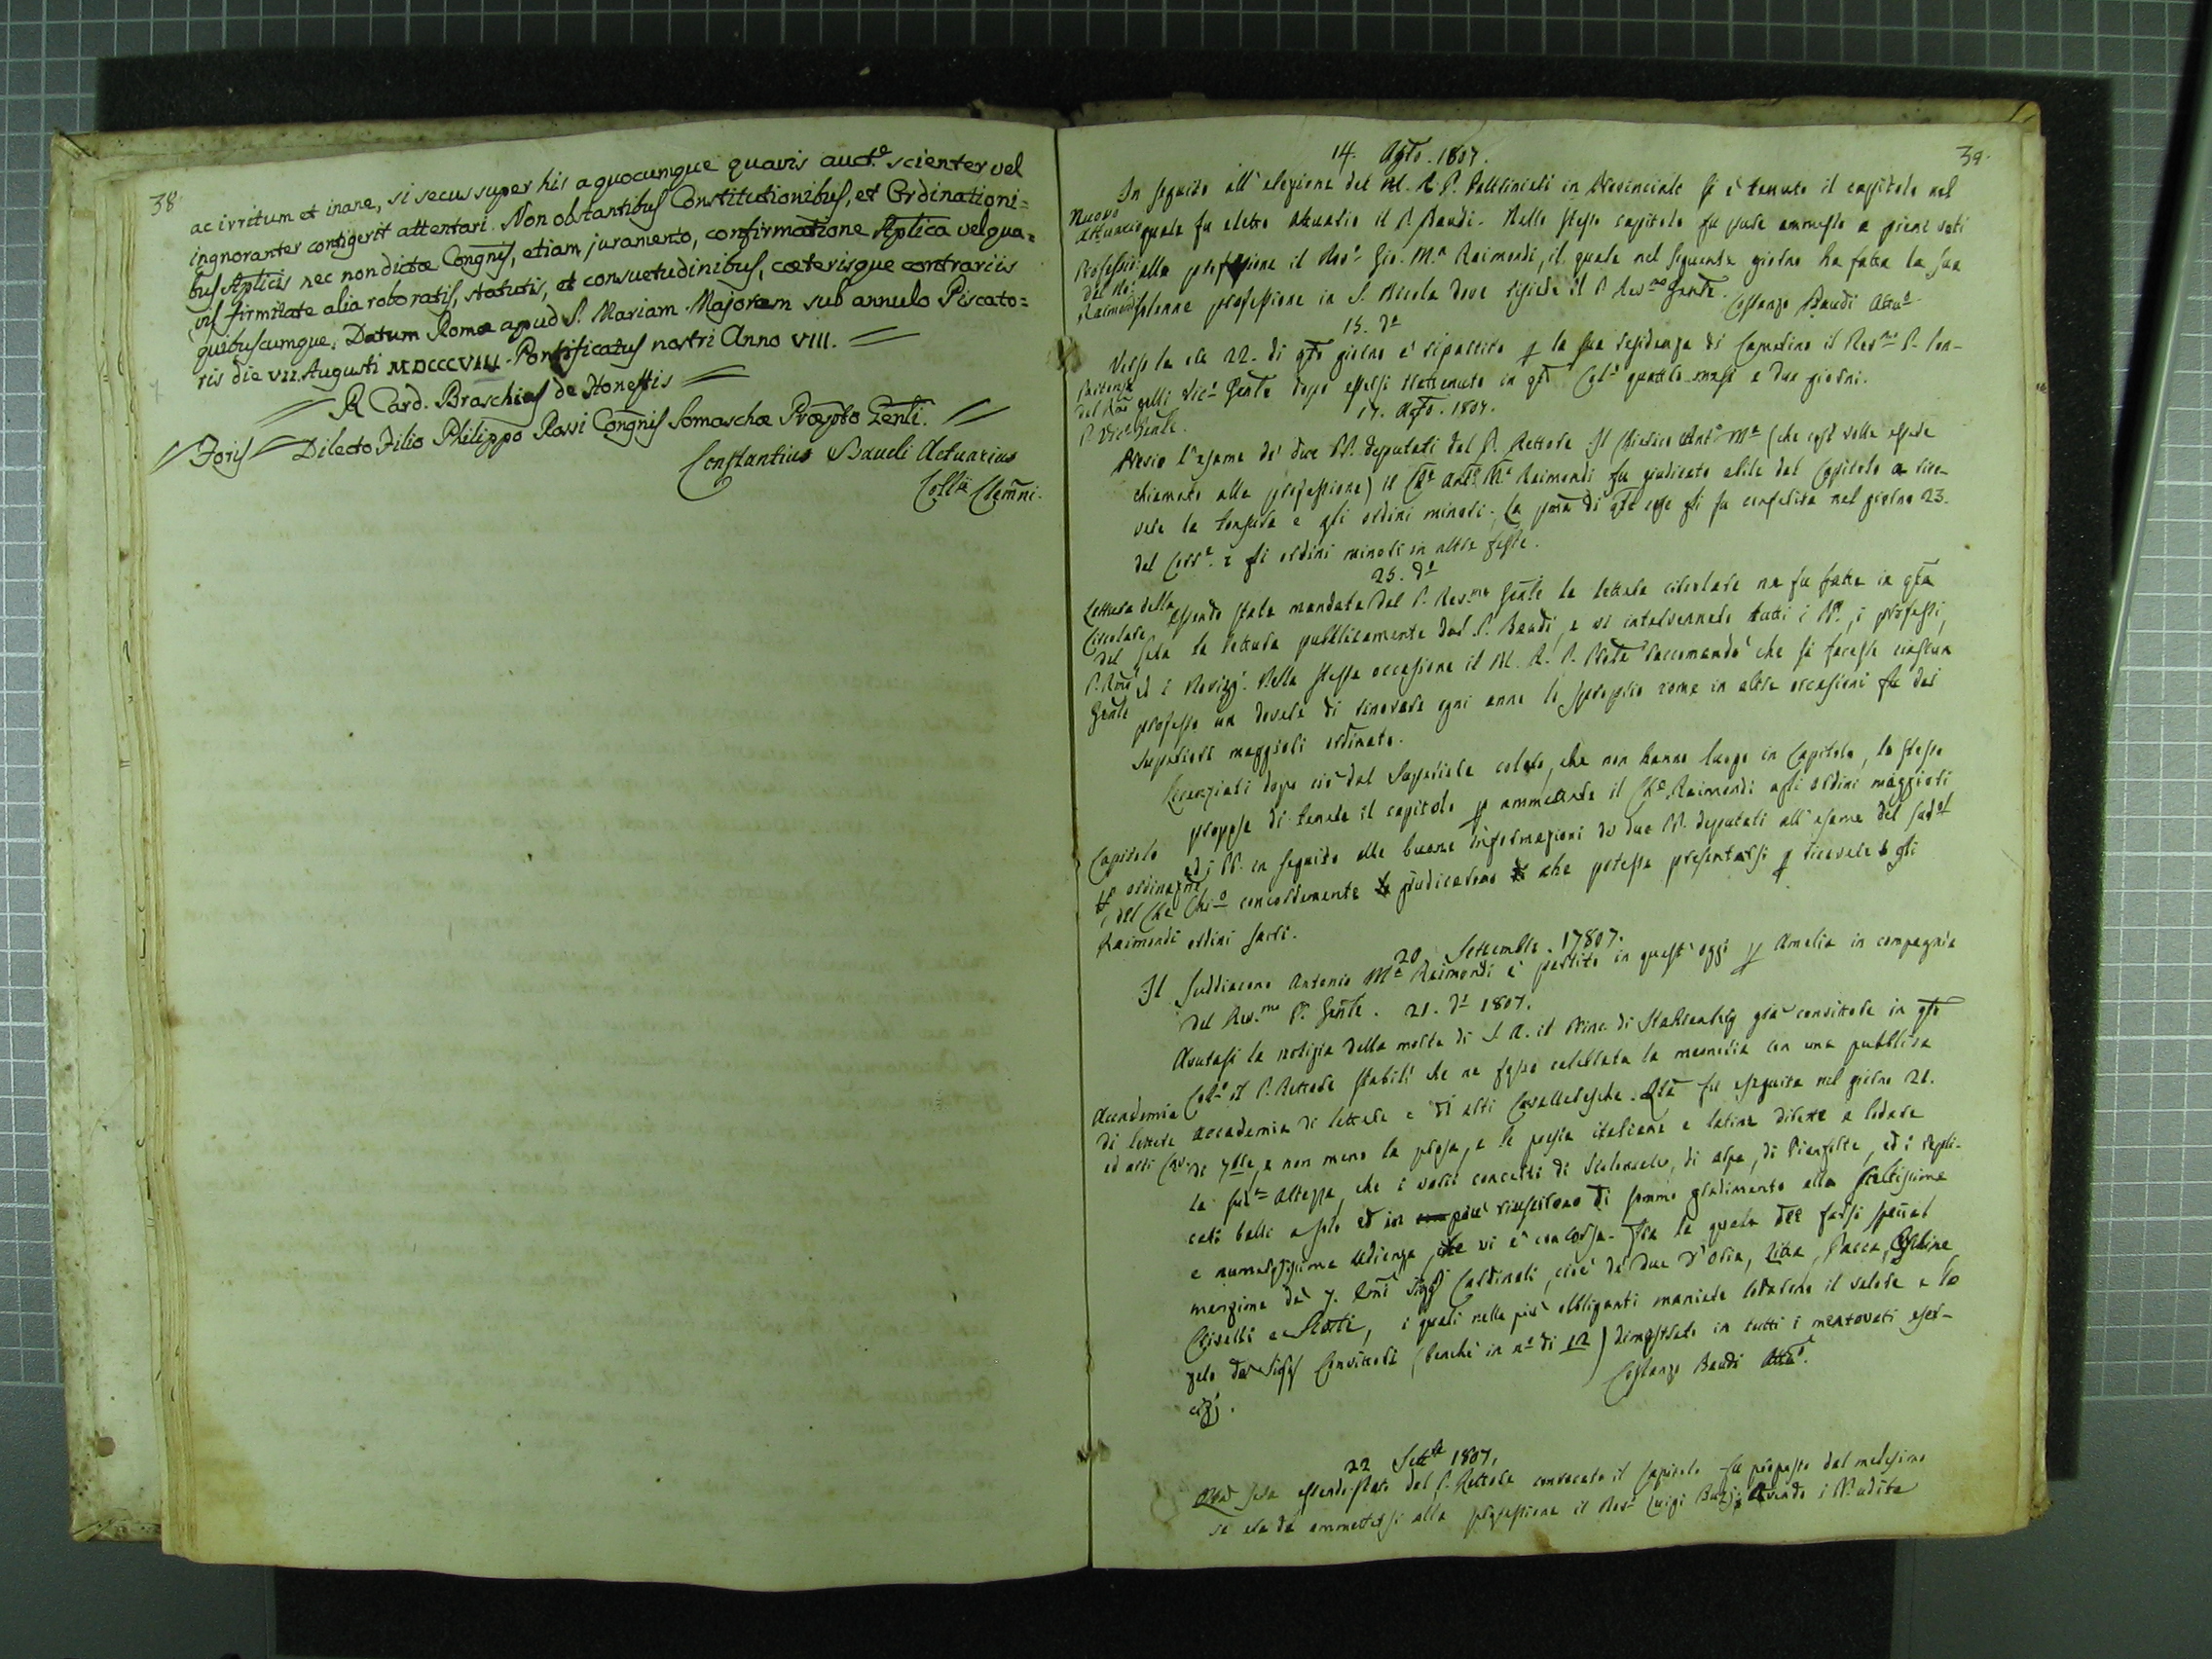 38
ac irritum et inane, si secus super his a quocumque quavis auct.e scienter vel
ingnoranter contigerit attentari. Non obstantibus Constitutionibus, et Ordinationi=
bus Aplicis nec non dictæ Congnis, etiam juramento, confirmatione Aplica vel qua=
vis firmitate alia roboratis, statutis, et consuetudinibus, cæterisque contrariis
quibuscumque. Datum Romæ apud S. Mariam Majorem sub annulo Piscato=
ris die VII. Augusti MDCCCVIII. Pontificatus nostri Anno VIII. =
= R Card. Braschius de Honestis =
= Foris = Dilecto Filio Philippo Rossi Congnis Somaschæ Præpto Genli. =
Constantius Baudi Actuarius
Collii Clemni.
39.
14. Agto. 1807.
In seguito all' elezione del M. R. P. in Provinciale si è tenuto il capitolo nel
Nuovo Attuario
quale fu eletto Attuario il P. Baudi. Nello stesso capitolo fu pure ammesso a pieni voti
Profess. del No: Raimondi
alla professione il Nov.o Gio. M.a Raimondi, il quale nel seguente giorno ha fatta la sua
solenne professione in S. Nicola dove risiede il P. Rev.mo Genle. Costanzo Baudi Attu.o
15. d.o
Verso le ore 22. di qto giorno è ripartito p la sua residenza di Camerino il Rev.mo P. Lon-
Partenza del Rmo P. Vic.o Genle.
gelli Vic.o Genle dopo essersi trattenuto in qto Col.o quattro mesi e due giorni.
17. Agto. 1807.
Previo l'esame de' due PP. deputati dal P. Rettore Il Chierico Ant.o M.a (che così volle essere
chiamato alla professione) il Ch.o Ant.o M.a Raimondi fu giudicato abile dal Capitolo a rice-
vere la tonsura e gli ordini minori. La pma di qte cose gli fu conferita nel giorno 23.
del Corr.e e gli ordini minori in altre feste.
25. d.o
Lettura della Circolare del P. Rmo Genle
Essendo stata mandata dal P. Rev.mo Genle la lettera circolare ne fu fatta in qta
sera la lettura pubblicamente dal P. Baudi, e vi intervennero tutti i PP., i professi,
ed i Novizzj. Nella stessa occasione il M. R. P. raccomandò che si facesse ciascun
professo un dovere di rinovare ogni anno lo sproprio come in altre occasioni fu dai
Superiori maggiori ordinato.
Licenziati dopo ciò dal Superiore coloro, che non hanno luogo in Capitolo, lo stesso
propose di tenere il capitolo p ammettere il Ch.o Raimondi agli ordini maggiori
Capitolo p ordinazne del Ch.o Raimondi
ed i PP. in seguito alle buone informazioni de' due PP. deputati all' esame del sud.o
Chi.o concordemente giudicarono che potesse presentarsi p ricevere gli
ordini sacri.
20 Settembre. 17807.
Il Suddiacono Antonio M.a Raimondi è partito in quest' oggi p Amelia in compagnia
del Rev.mo P. Genle. 21. d.o 1807.
Avutasi la notizia della morte di S. A. il Princ. di già convittore in qto
Col.o il P. Rettore stabilì che ne fosse celebrata la memoria con una pubblica
Accademia di lettere ed arti Cav.
accademia di lettere e di arti Cavalleresche. Qta fu eseguita nel giorno 21.
di 7bre, e non meno la prosa, e le poesia italiana e latina dirette a lodare
la sud.a Altezza, che i varii concerti di, di arpa, di Pianforte, ed i repli-
cati balli a solo ed in più riuscirono di sommo gradimento alla sceltissima
e numerosissima udienza, che vi è concorsa. Fra la quale dee farsi special
menzione de' 7. Emi Sigg Cardinali, cioè de' due d' Oria, Litta, Pacca,
Crivelli e, i quali nelle più obbliganti maniere lodarono il valore e lo
zelo de' Sigg Convittori (benchè in n.o di 12) dimostrato in tutti i mentovati eser-
cizj. Costanzo Baudi Attu.o
22 Sett.e 1807.
Qta sera essendo stato dal P. Rettore convocato il Capitolo fu proposto dal medesimo
se era da ammettersi alla professione il Nov.o Luigi. Avendo i PP. udite